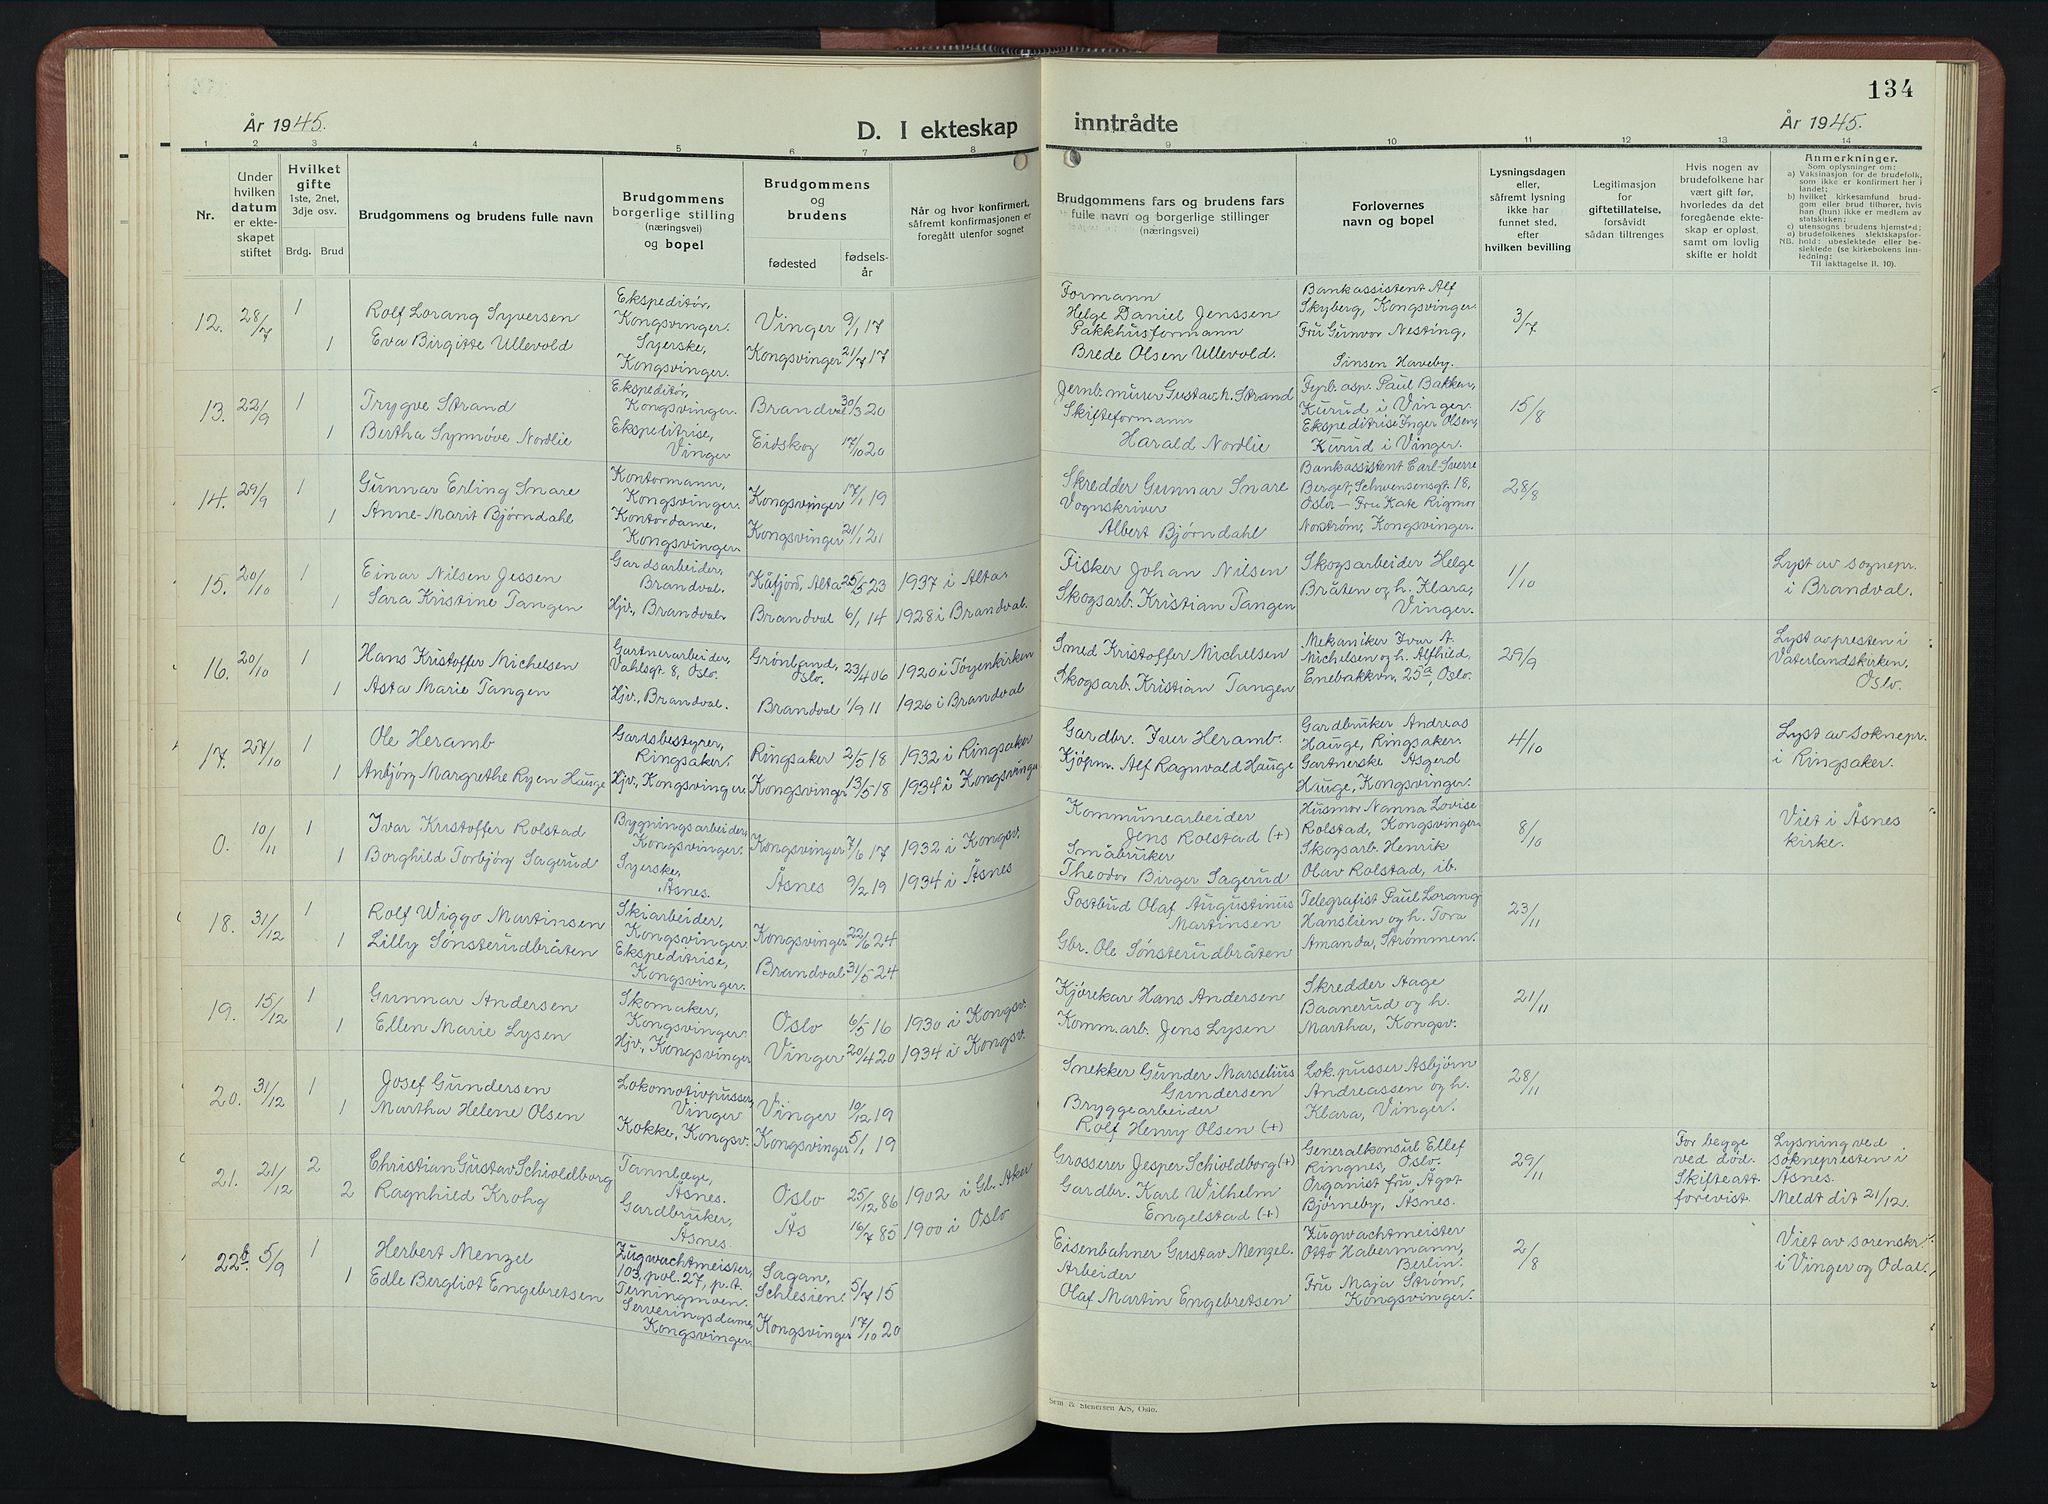 134
År 1945.
D. I ekteskap inntrådte
År 1945.
1 2 3 4 5 6 7 8 9 10 11 12 13 14
Nr.
Under hvilken datum er ekteskapet stiftet
Hvilket gifte 1ste, 2net, 3dje osv.
Brdg. Brud
Brudgommens og brudens fulle navn
Brudgommens borgerlige stilling (næringsvei) og bopel
Brudgommens og brudens
fødested
fødselsår
Når og hvor konfirmert, såfremt konfirmasjonen er foregått utenfor sognet
Brudgommens fars og brudens fars fulle navn og borgerlige stillinger (næringsvei)
Forlovernes navn og bopel
Lysningsdagen eller, såfremt lysning ikke har funnet sted, efter hvilken bevilling
Legitimasjon for giftetillatelse, forsåvidt sådan tiltrenges
Hvis nogen av brudefolkene har vært gift før, hvorledes da det foregående ekteskap er opløst, samt om lovlig skifte er holdt
Anmerkninger.
Som oplysninger om:
a) Vaksinasjon for de brudefolk, som ikke er konfirmert her i landet;
b) hvilket kirkesamfund brudgom eller brud tilhører, hvis han (hun) ikke er medlem av statskirken;
c) utensogns brudens hjemsted;
d) brudefolkenes slektskapsforhold: ubeslektede eller beslektede (se kirkebokens innledning:
NB.
Til iakttagelse II. 10).
12. 28/7 1 Rolf Lorang Syversen Ekspeditør, Kongsvinger. Vinger 9/1 17
1 Eva Birgitte Ullevold Syerske, Kongsvinger. Kongsvinger 21/7 17
Formann Helge Daniel Jenssen
Pakkhusformann Brede Olsen Ullevold.
Bankassistent Alf Skyberg, Kongsvinger. Fru Gunvor Nesting, Sinsen Haveby.
3/7
13. 22/9 1 Trygve Strand Ekspeditør, Kongsvinger. Brandval 30/3 20
1 Bertha Synnøve Nordlie Ekspeditrise, Vinger Eidskog 17/10 20
Jernb. murer Gustav h. Strand
Skifteformann Harald Nordlie
Fyrb. asp. Paul Bakken, Kurud i Vinger. Ekspeditrise Inger Olsen, Kurud i Vinger.
15/8
14. 29/9 1 Gunnar Erling Snare Kontormann, Kongsvinger. Kongsvinger 17/1 19
1 Anne-Marit Bjørndahl Kontordame, Kongsvinger. Kongsvinger 21/1 21
Skredder Gunnar Snare
Vognskriver Albert Bjørndahl
Bankassistent Carl-Sverre Berget, Schwensensgt. 18, Oslo - Fru Kate Rigmor Norstrøm, Kongsvinger.
28/8
15. 20/10 1 Einar Nilsen Jessen Gardsarbeider, Brandval. Kåfjord, Alta 25/5 23 1937 i Alta.
1 Sara Kristine Tangen Hjv., Brandval. Brandval 6/1 14 1928 i Brandval.
Fisker Johan Nilsen
Skogsarb. Kristian Tangen
Skogsarbeider Helge Bråten og h. Klara, Vinger.
1/10
Lyst av sognepr. i Brandval.
16. 20/10 1 Hans Kristoffer Michelsen Gartnerarbeider, Vahlsgt. 8, Oslo. Grønland, Oslo. 23/4 06 1920 i Tøyenkirken
1 Asta Marie Tangen Hjv., Brandval. Brandval 1/9 11 1926 i Brandval
Smed Kristoffer Michelsen
Skogsarb. Kristian Tangen
Mekaniker Ivar A. Michelsen og h. Alfhild, Enebakkvn. 25a, Oslo.
29/9
Lyst av presten i Vaterlandskirken, Oslo.
17. 27/10 1 Ole Heramb Gardsbestyrer, Ringsaker. Ringsaker 2/5 18 1932 i Ringsaker
1 Anbjørg Margrethe Ryen Hauge Hjv., Kongsvinger. Kongsvinger 13/5 18 1934 i Kongsvinger
Gardbr. Iver Heramb.
Kjøpm. Alf Ragnvald Hauge
Gardbruker Andreas Hauge, Ringsaker. Gartnerske Asgerd Hauge, Kongsvinger.
4/10
Lyst av soknepr. i Ringsaker.
0. 10/11 1 Ivar Kristoffer Rolstad Bygningsarbeider, Kongsvinger. Kongsvinger 7/6 17 1932 i Kongsv.
1 Borghild Torbjørg Sagerud Syerske, Åsnes. Åsnes 9/2 19 1934 i Åsnes
Kommunearbeider Jens Rolstad (+)
Småbruker Theodor Birger Sagerud
Husmor Nanna Lovise Rolstad, Kongsvinger. Skogsarb. Henrik Olav Rolstad, ib.
8/10
Viet i Åsnes kirke.
18. 31/12 1 Rolf Wiggo Martinsen Skiarbeider, Kongsvinger Kongsvinger 22/6 24
1 Lilly Sønsterudbråten Ekspeditrise, Kongsvinger. Brandval 31/5 24
Postbud Olaf Augustinus Martinsen
Gbr. Ole Sønsterudbråten
Telegrafist Paul Lorang Hanslien og h. Tora Amanda, Strømmen.
23/11
19. 15/12 1 Gunnar Andersen Skomaker, Kongsvinger. Oslo 6/5 16 1930 i Kongsv.
1 Ellen Marie Lysen Hjv., Kongsvinger Vinger 20/4 20 1934 i Kongsv.
Kjørekar Hans Andersen
Komm. arb. Jens Lysen
Skredder Aage Baanerud og h. Martha, Kongsv.
21/11
20. 31/12 1 Josef Gundersen Lokomotivpusser, Vinger Vinger 10/12 19
1 Martha Helene Olsen Kokke, Kongsv. Kongsvinger 5/1 19
Snekker Gunder Marselius Gundersen
Bryggearbeider Rolf Henry Olsen (+)
Lok. pusser Asbjørn Andreassen og h. Klara, Vinger.
28/11
21. 21/12 2 Christian Gustav Schioldborg Tannlæge, Åsnes. Oslo 25/12 86 1902 i Gl. Aker
2 Ragnhild Krohg Gardbruker, Åsnes. Ås 16/7 85 1900 i Oslo
Grosserer Jesper Schioldborg (+)
Gardbr. Karl Wilhelm Engelstad (+)
Generalkonsul Ellef Ringnes, Oslo. Organist fru Ågot Bjørneby, Åsnes.
29/11
For begge ved død. Skifteatt. forevist.
Lysning ved soknepresten i Åsnes. Meldt dit 21/12.
22b. 5/9 1 Herbert Menzel Zugwachtmeister, 103, pol. 27, p.t. Terningmoen. Sagan, Schlesien. 5/7 15
1 Edle Bergliot Engebretsen Serveringsdame, Kongsvinger. Kongsvinger 17/10 20
Eisenbahner Gustav Menzel.
Arbeider Olaf Martin Engebretsen
Zugwachtmeister Otto Habermann, Berlin. Fru Maja Strøm, Kongsvinger.
2/8
Viet av sorenskr. i Vinger og Odal.
Sem & Stenersen A/S, Oslo.